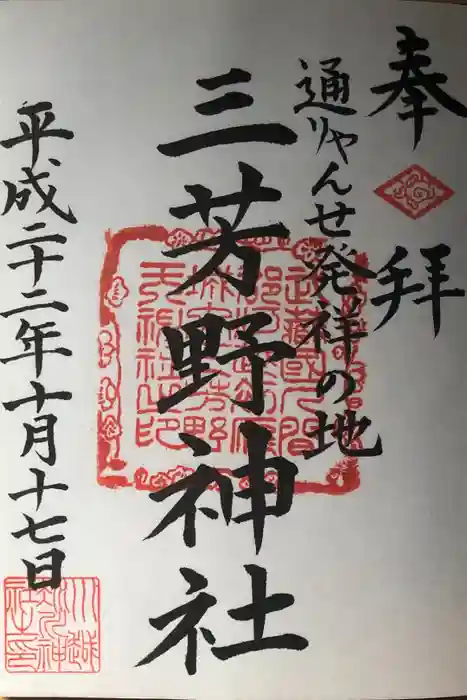 奉拝
通りゃんせ発祥の地
三芳野神社
平成二十二年十月十七日